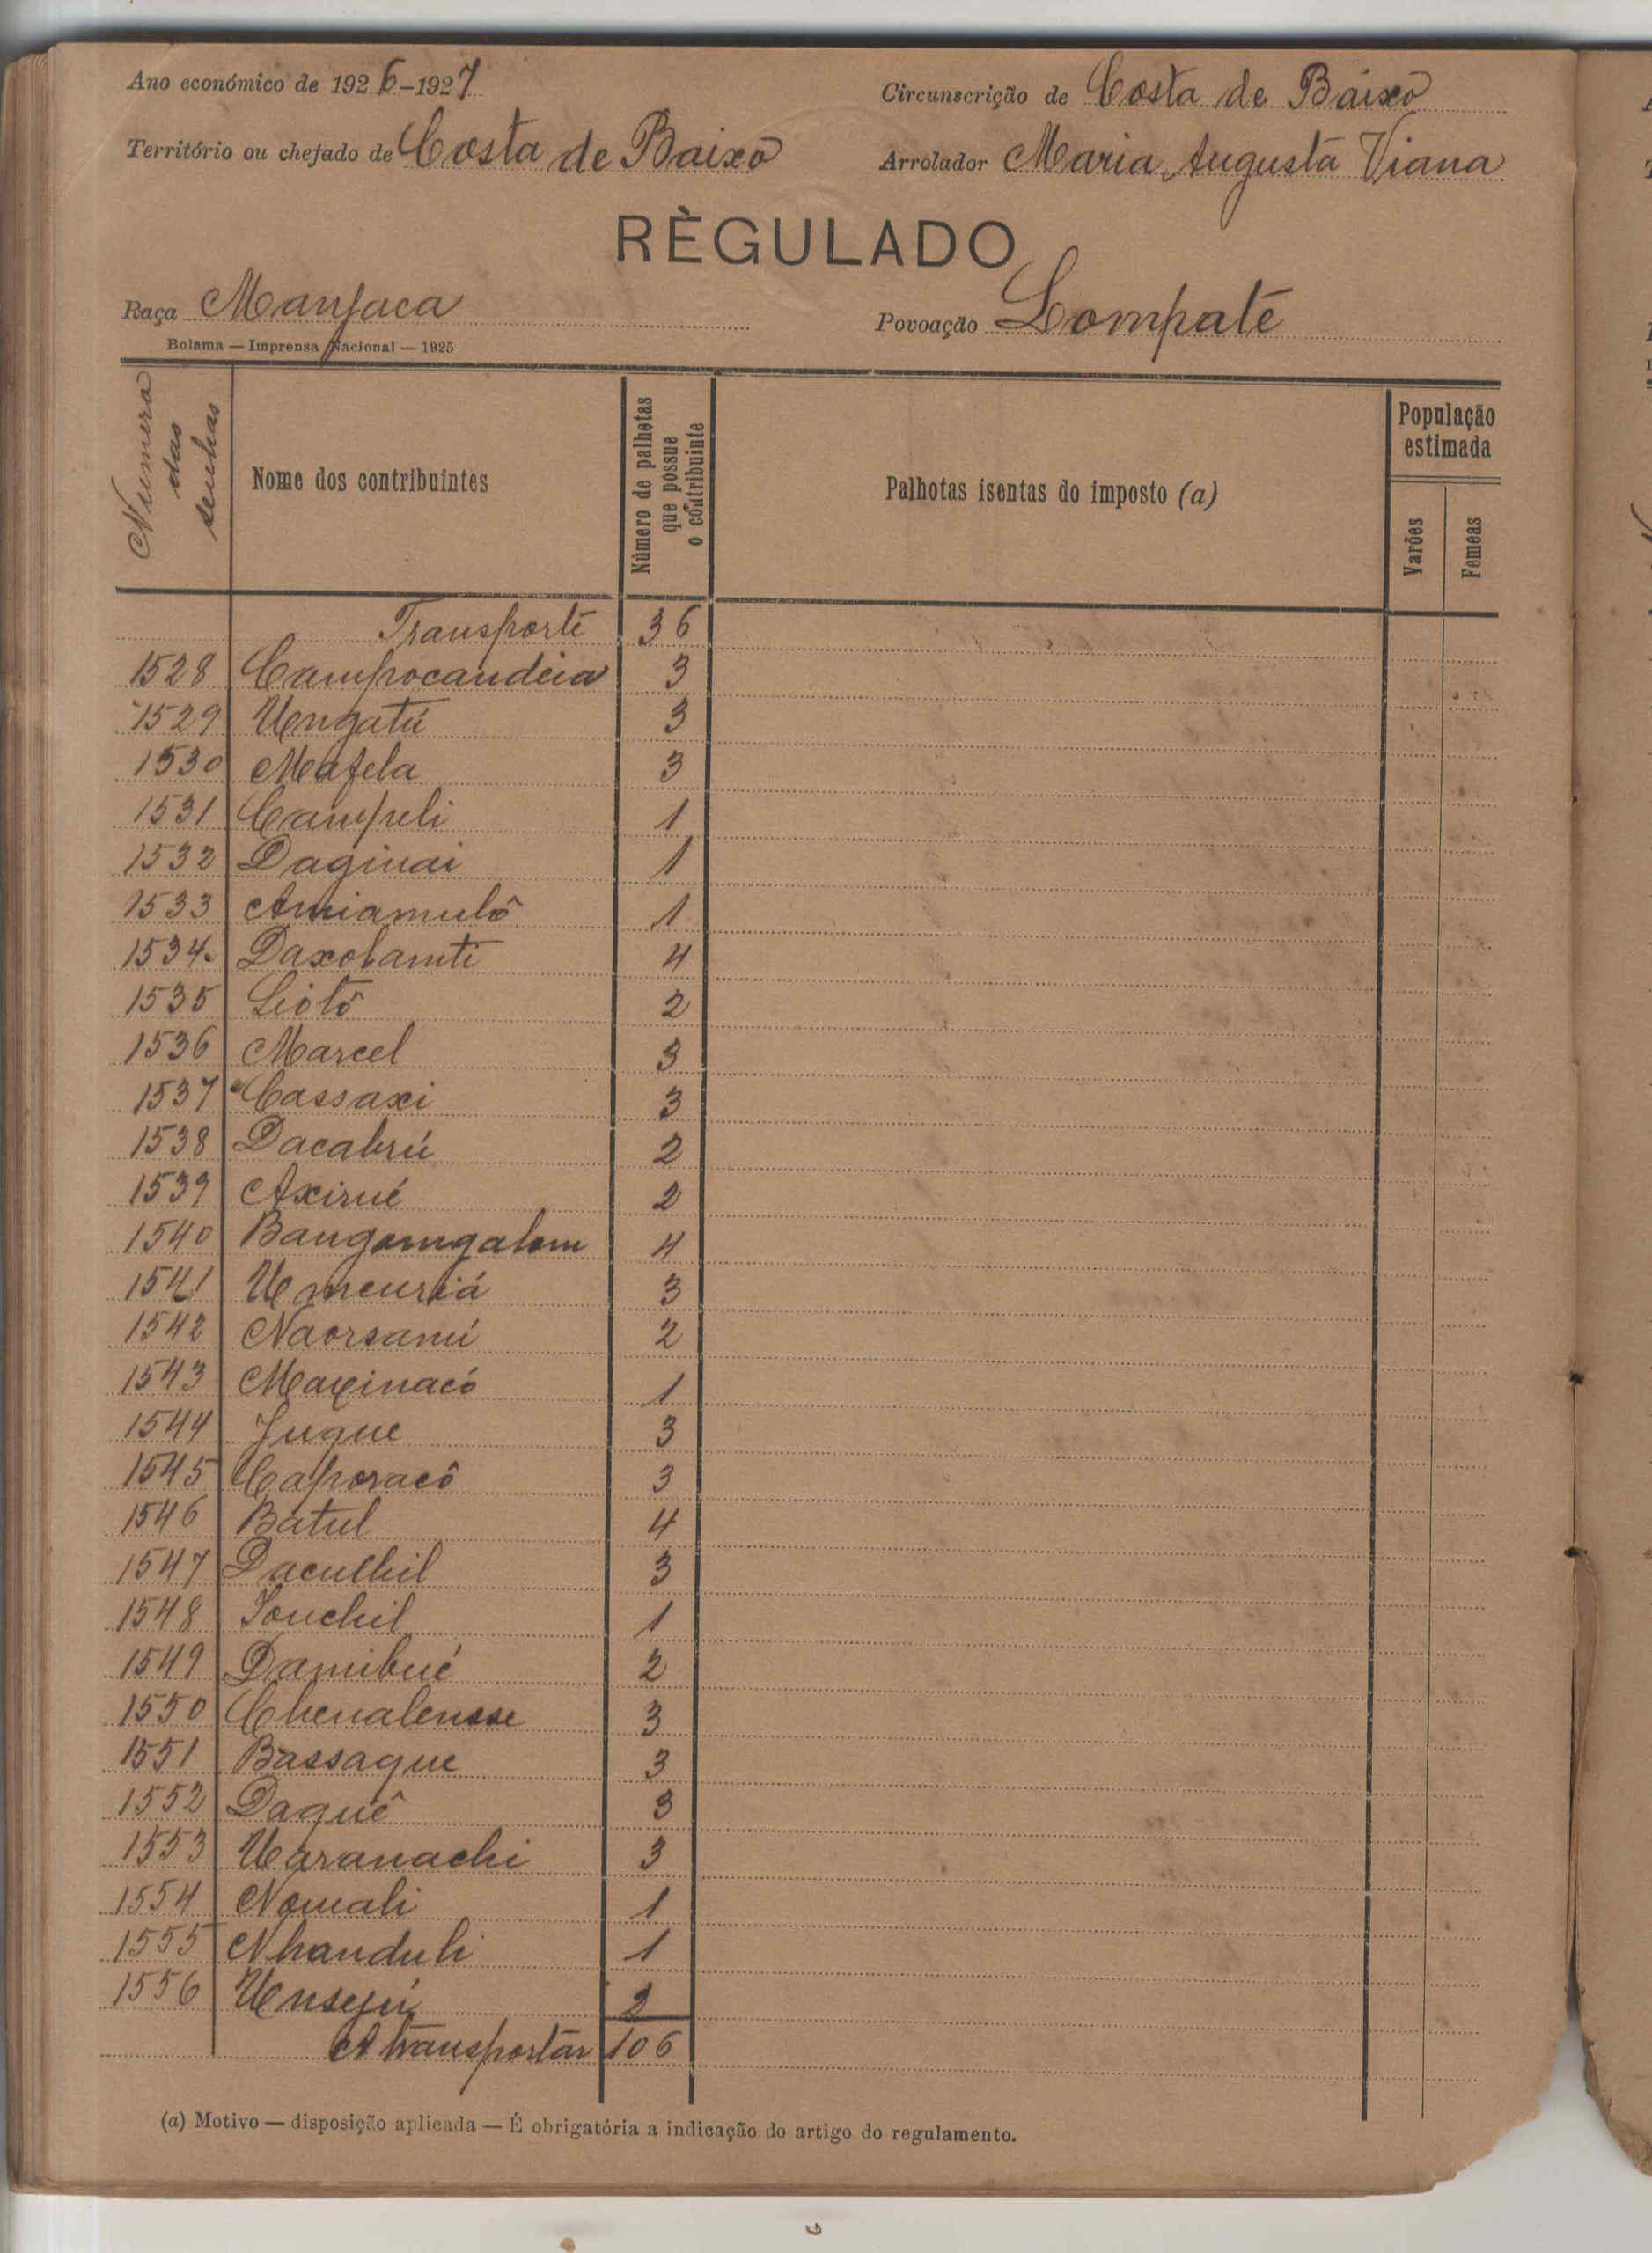 Ano económico de 1926-1927
Circunscrição de Costa de Baixo
Território ou chefado de Costa de Baixo
Arrolador Maria Augusta Viana
RÈGULADO
Raça Manjaca
Povoação Lompate
Bolama — Imprensa Nacional — 1925
Numero das senhas
Nome dos contribuintes
Número de palhotas que possue o contribuinte
Palhotas isentas do imposto (a)
População estimada
Varões
Femeas
Transporte 36
1528 Campocandeia 3
1529 Uengatú 3
1530 Mafela 3
1531 Campeli 1
1532 Daginai 1
1533 Amiamulô 1
1534 Daxolamti 4
1535 Leótô 2
1536 Marcel 3
1537 Cassaxi 3
1538 Dacabrú 2
1539 Axirué 2
1540 Bangomgalom 4
1541 Umcuriá 3
1542 Naorsamú 2
1543 Maxinacó 1
1544 Juque 3
1545 Caporacô 3
1546 Batul 4
1547 Daculhil 3
1548 Jonchil 1
1549 Damibué 2
1550 Chenalensse 3
1551 Bassaque 3
1552 Daquê 3
1553 Uaranachi 3
1554 Nomali 1
1555 Nhanduli 1
1556 Unsejú 2
A transportar 106
(a) Motivo — disposição aplicada — É obrigatória a indicação do artigo do regulamento.